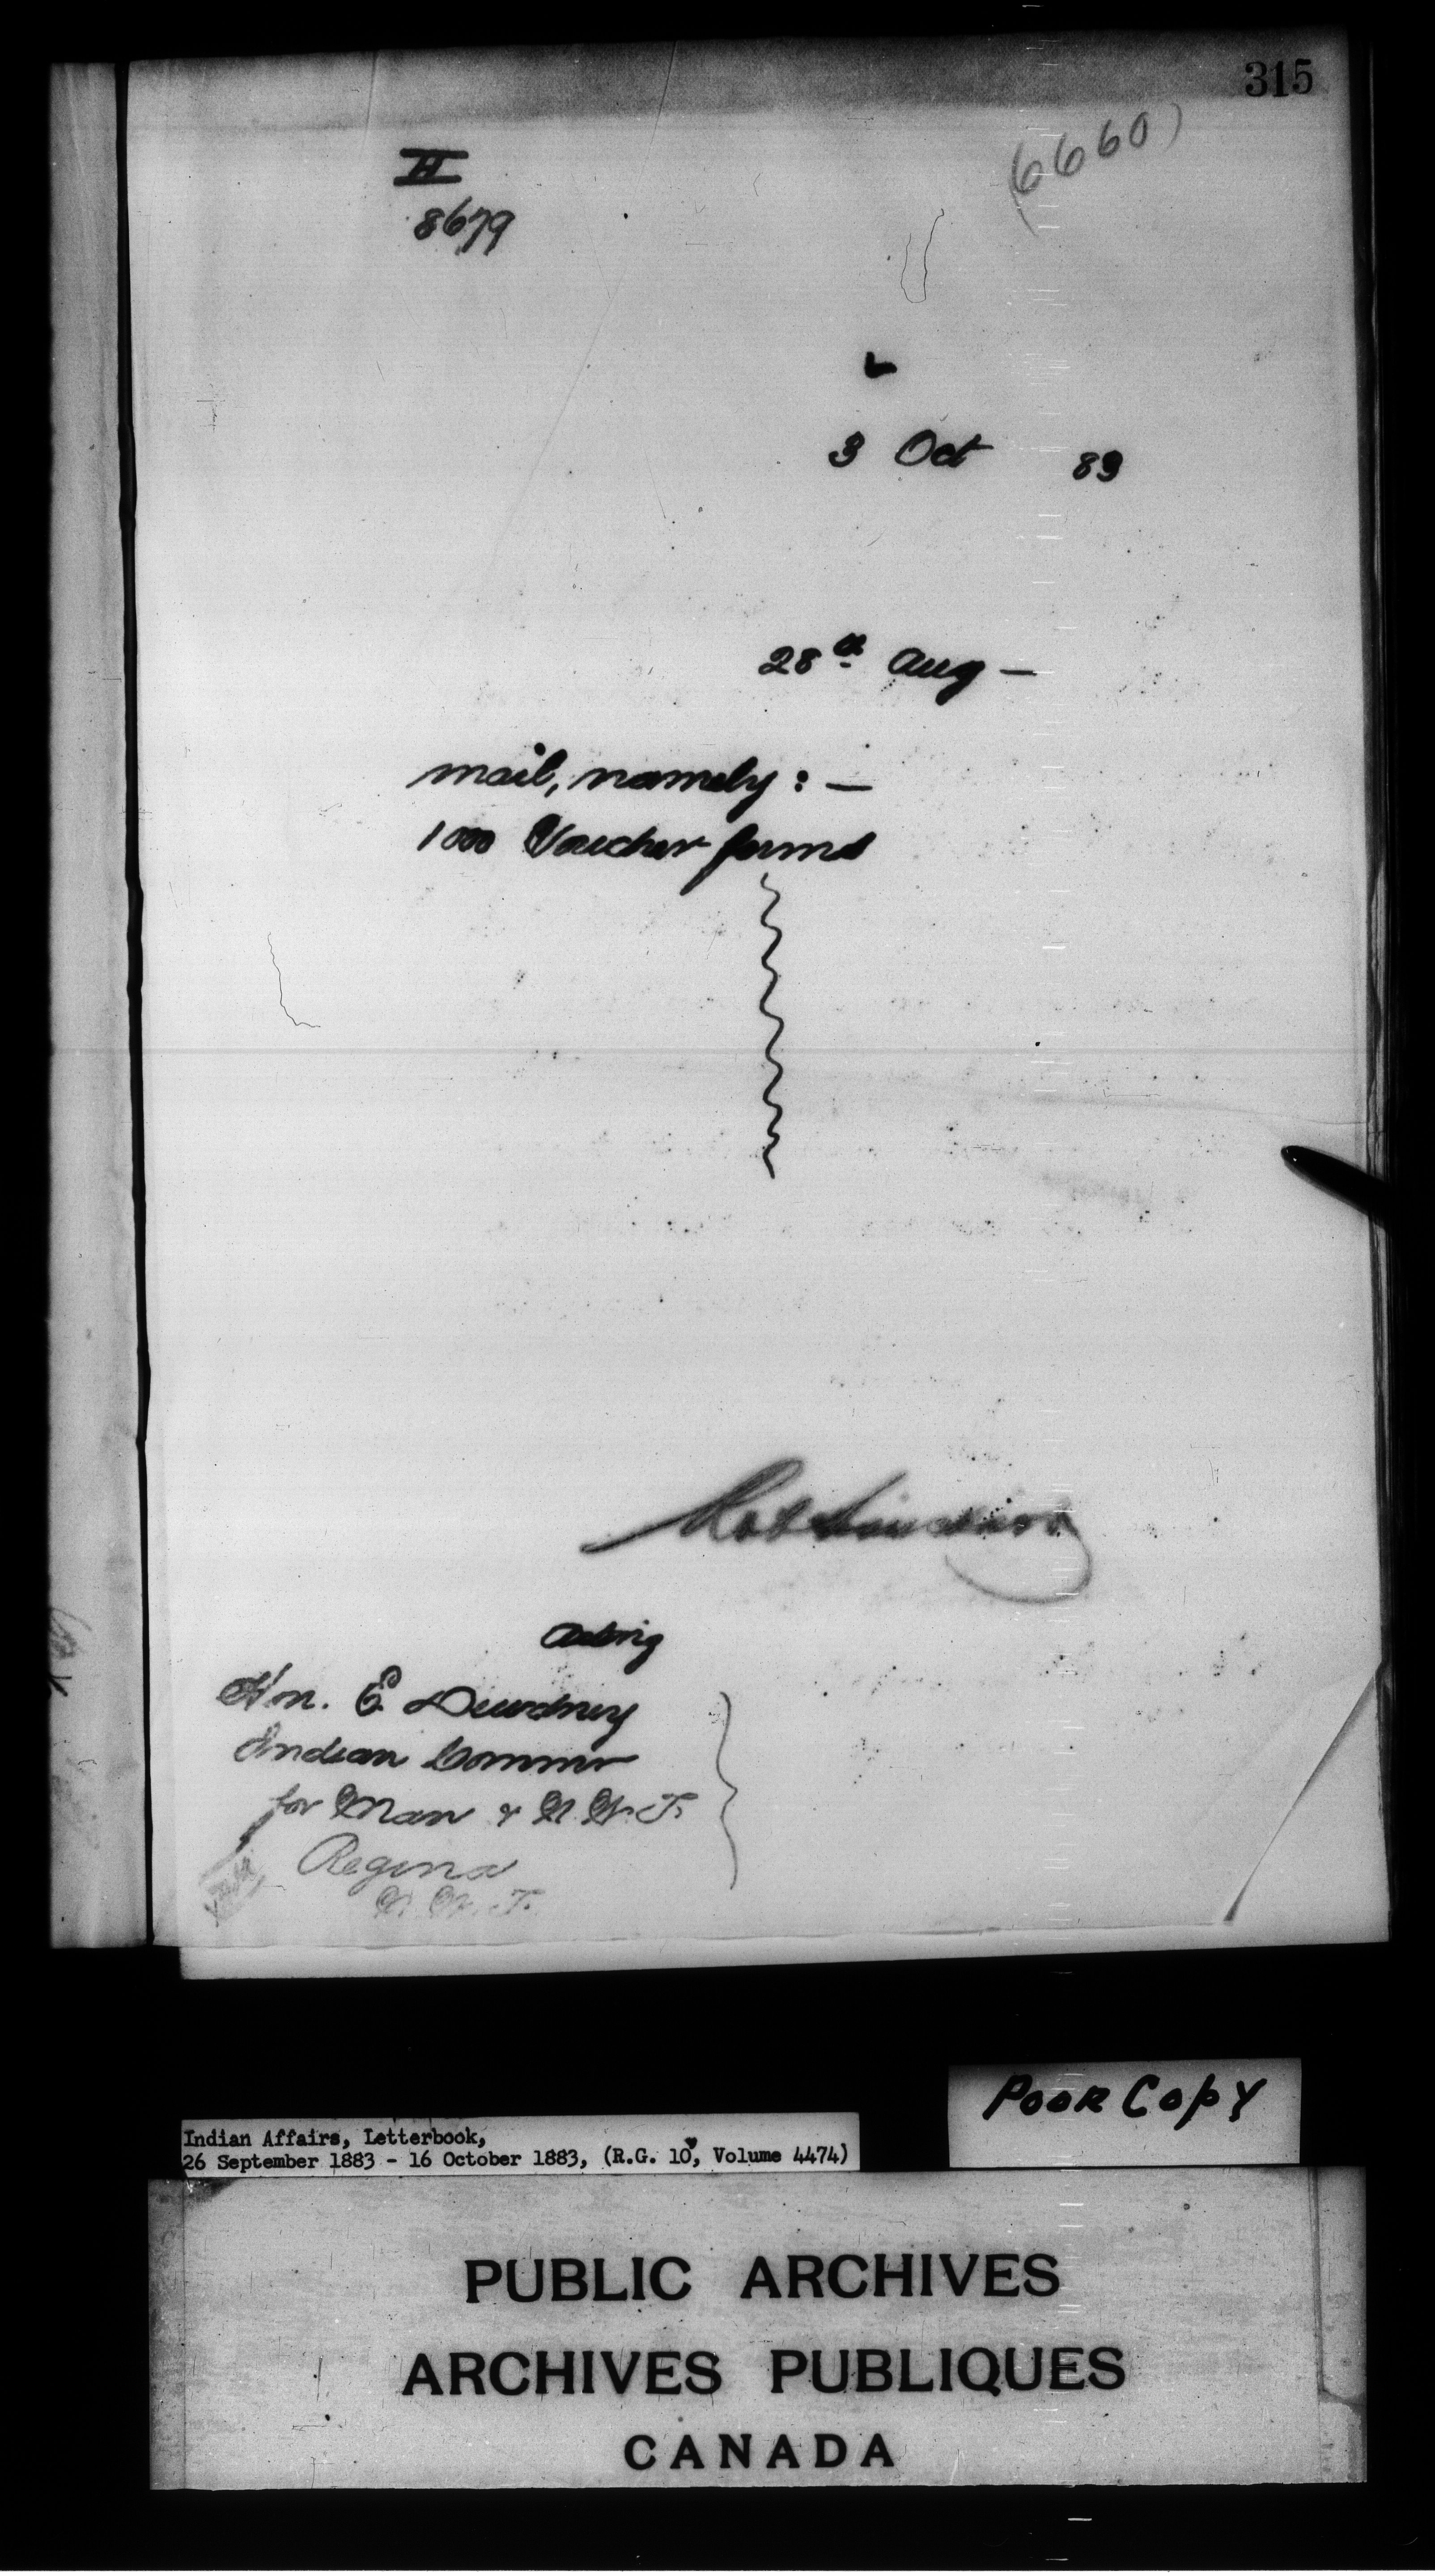 315
(6660)
H
8679
3 Oct 83
28th Aug —
mail, namely : —
1000 Voucher forms
Rob Sinclair
Acting
Hon. E Dewdney
Indian Commr
for Man & N. W. T.
Regina
N. W. T.
Poor Copy
Indian Affairs, Letterbook,
26 September 1883 - 16 October 1883, (R.G. 10, Volume 4474)
PUBLIC ARCHIVES
ARCHIVES PUBLIQUES
CANADA